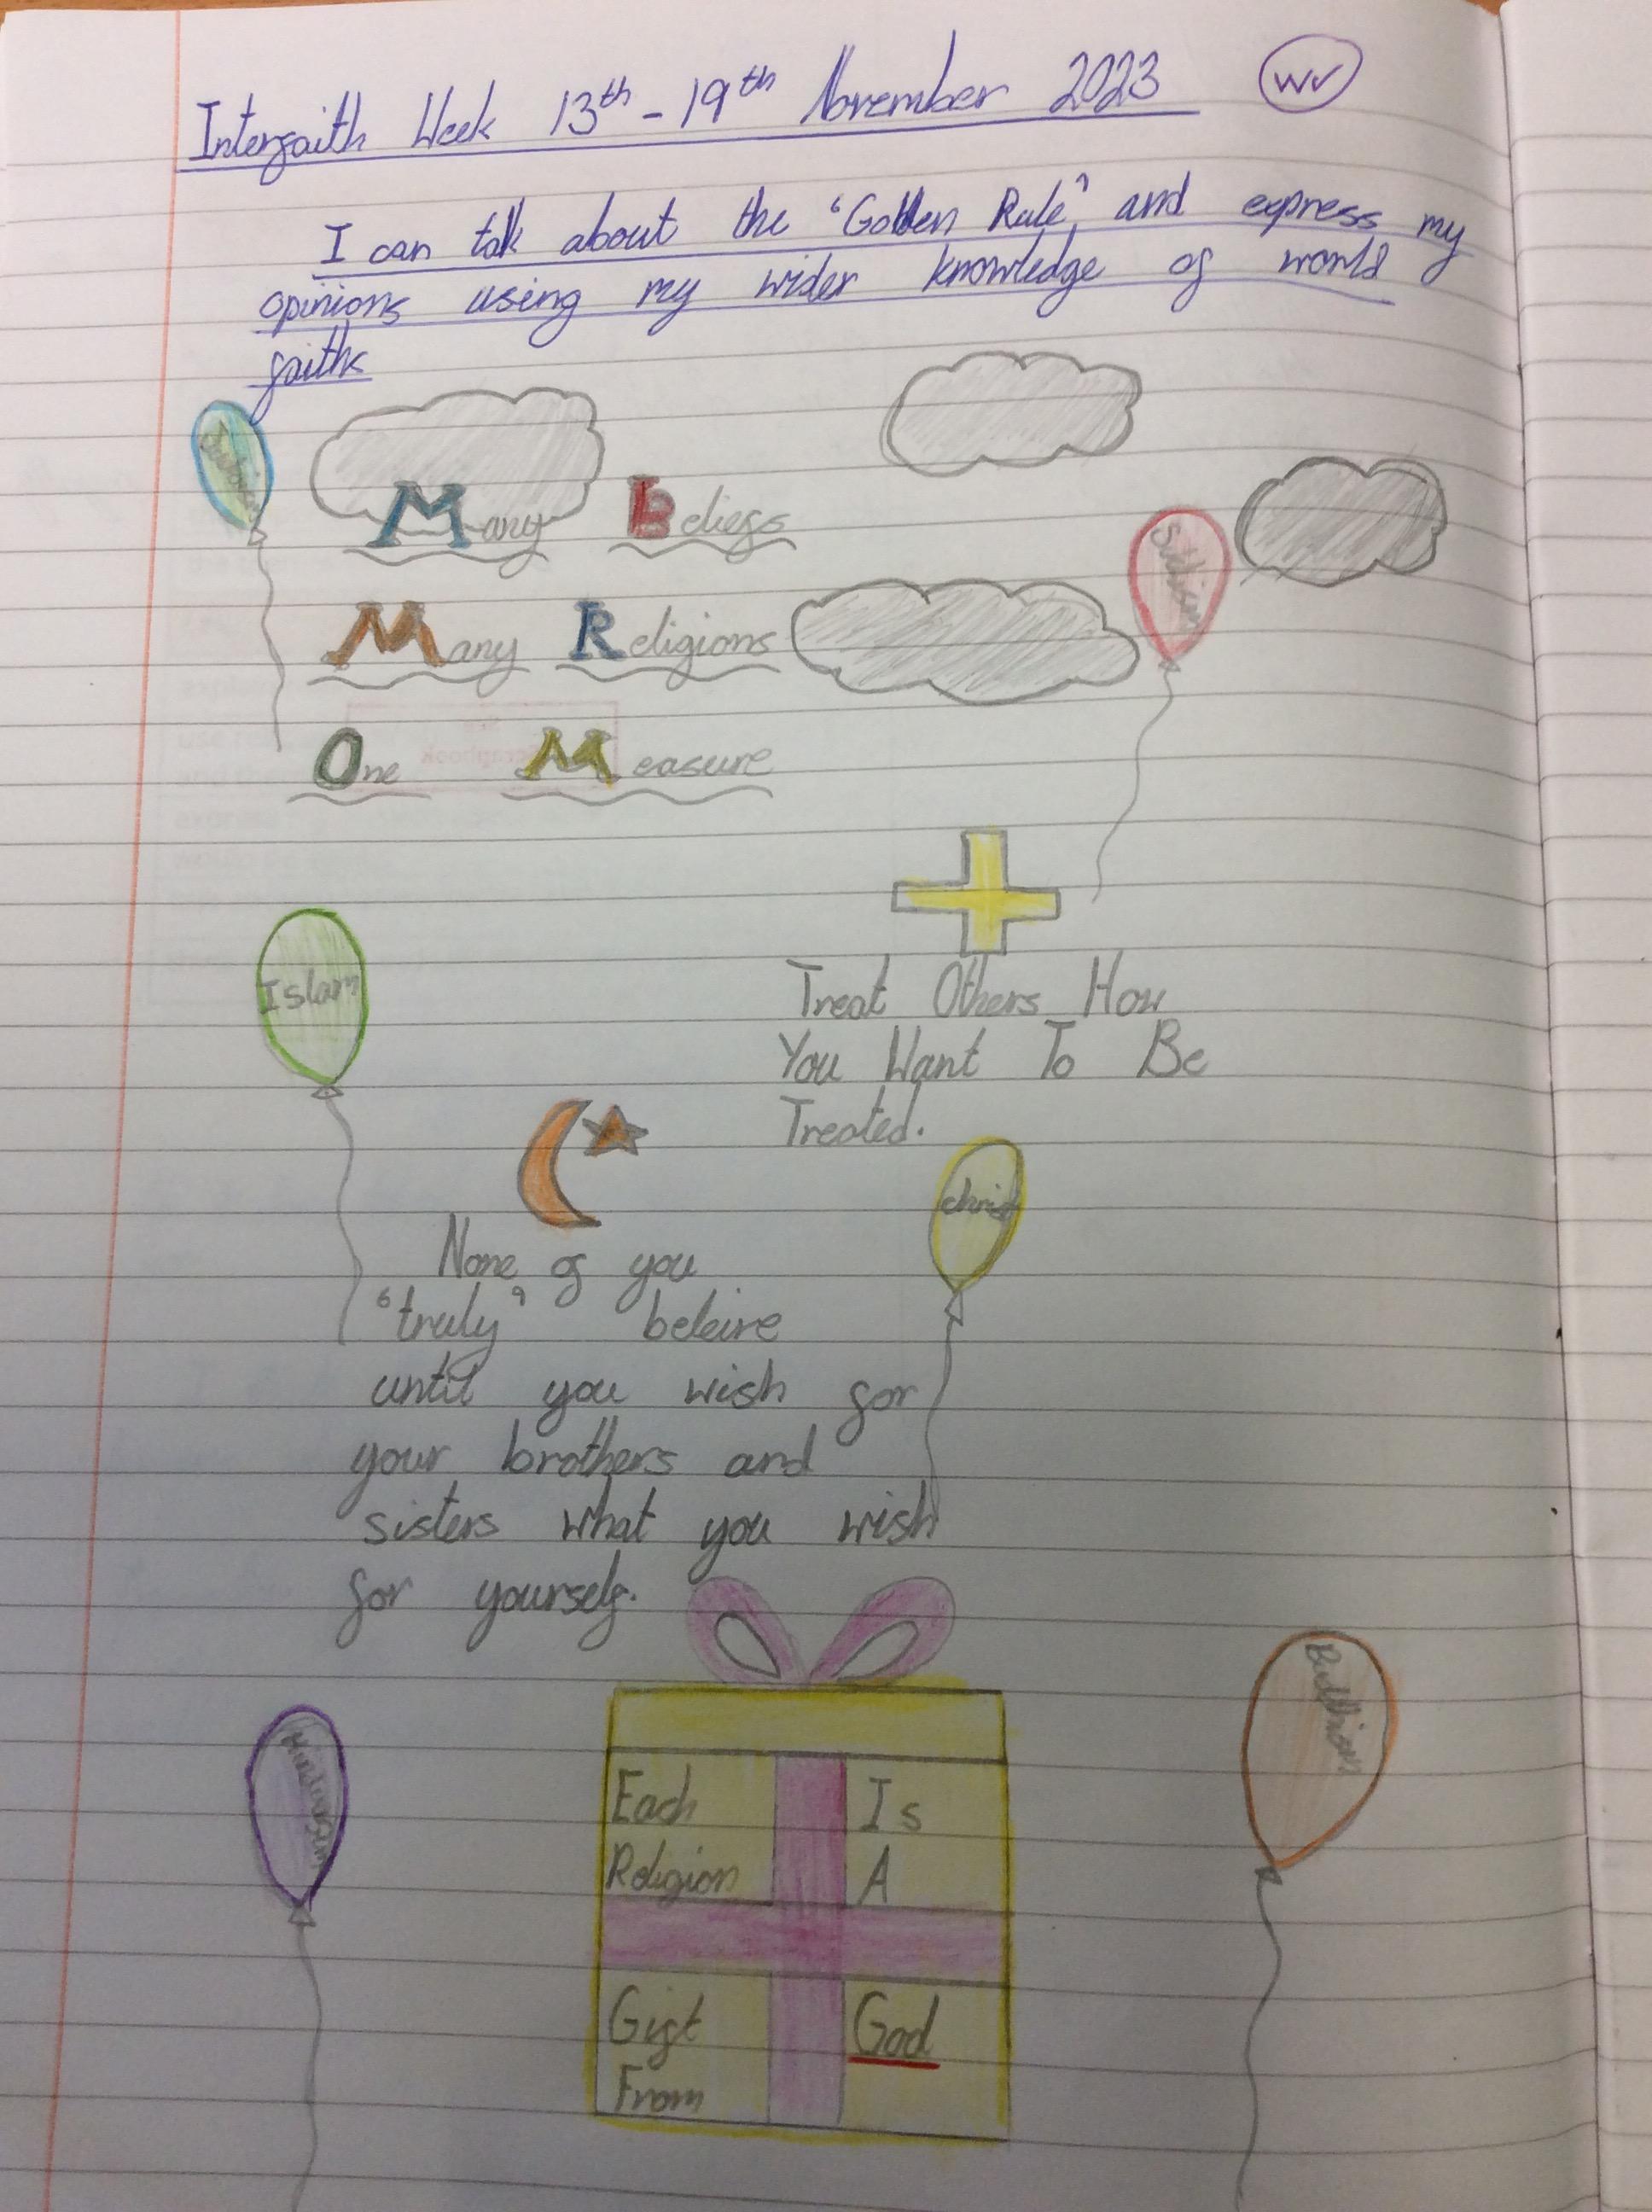 Interfaith Week 13th - 19th November 2023 WV
I can talk about the 'Golden Rule' and express my
opinions using my wider knowledge of world
faiths
Many Beliefs
Sikhism
Many Religions
One Measure
Islam
Treat Others How
You Want To Be
Treated.
christ
None of you
"truly" beleive
until you wish for
your brothers and
sisters what you wish
for yourself.
Hinduism
Each Is
Religion A
Gift God
From